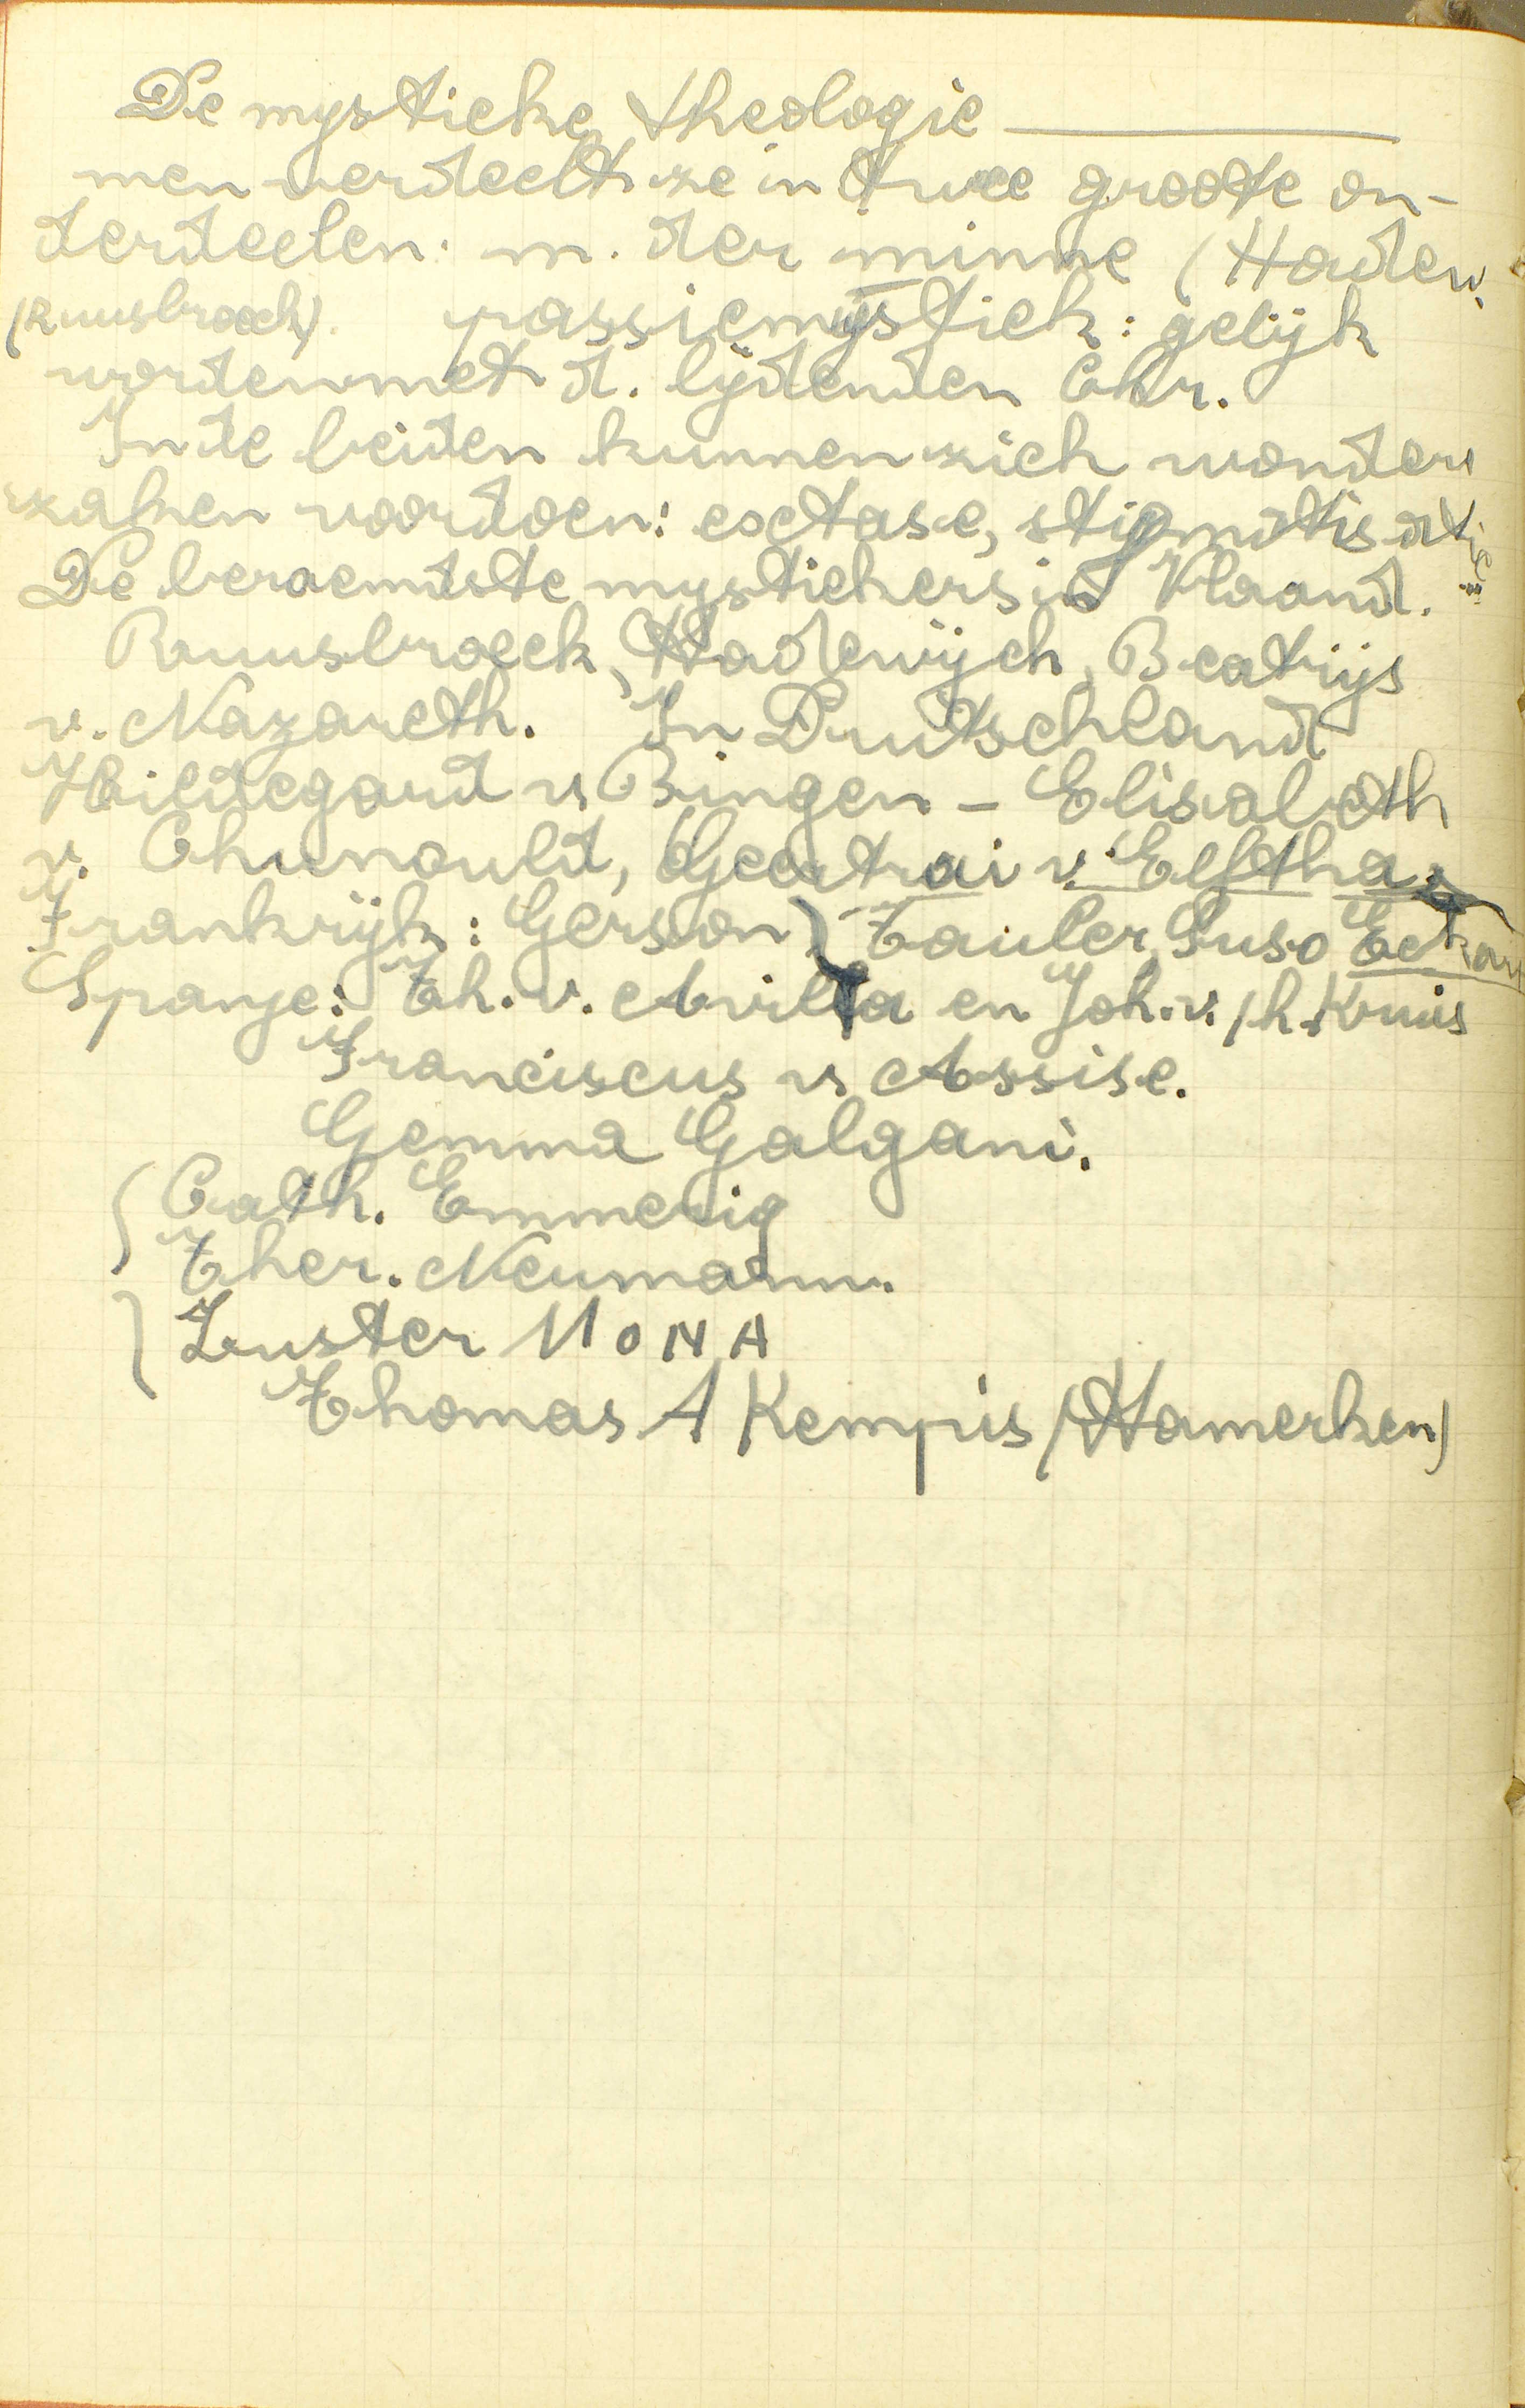 De mystieke theologie
men verdeelt ze in twee groote on-
derdeelen: m. der minne (Hadew.
(Ruusbroeck). passiemystiek: gelijk
worden met d. lijdenden Chr.
In de beiden kunnen zich wonder
zaken voordoen: exctase, stigmatisatie
De beroemdste mystiekers in Vlaand.
Ruusbroeck, Hadewijch, Beatrijs
v. Nazareth. In Duutschland
Hildegard v Bingen - Elisabeth
v. , Geertrui v. Elftha
Frankrijk: Gerson) Tauler, Suso Eckart
Spanje: Th. v. Avilla en Joh. v. /h. Kruis
Franciscus v Assise.
Gemma Galgani.
Cath. Emmerig
Ther. Neumann.
Zuster MONA
Thomas A Kempis (Hamerken)